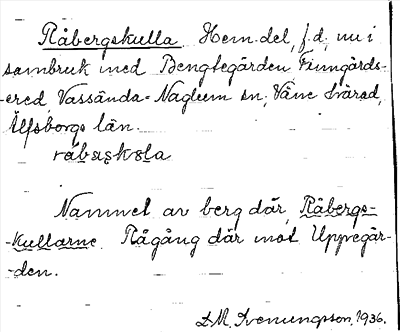 Råbergskulla Hem.del, f.d., nu i
sambruk med Bengtegården Finngårds-
-ered, Vassända-Naglum sn, Väne härad,
Älfsborgs län.
råbaskola
Namnet av berg där, Råbergs-
-kullarne. Rågång där mot Uppegår-
-den.
D.M. Ivenungsson, 1936.